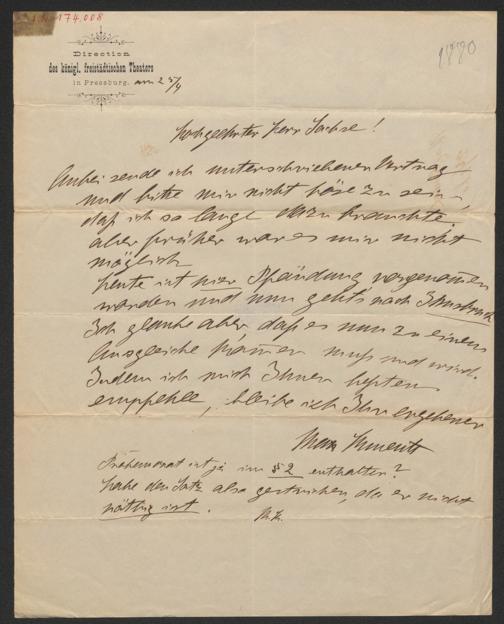 174.008
1880
Direction
des königl. freistädtischen Theaters
in Pressburg, am 25/4
Hochgeehrter Herr Sachse!
Anbei sende ich unterschriebenen Vertrag
und bitte mir nicht böse zu sein,
daß ich so lange dazu brauchte,
aber früher war es mir nicht
möglich
Heute ist hier Pfändung vorgenommen
worden und nun geht's nach Innsbruck
Ich glaube aber, daß es nun zu einem
Ausgleiche kommen muß und wird.
Indem ich mich Ihnen bestens
empfehle, bleibe ich Ihr ergebener
Max
Probemonat ist ja im § 2 enthalten?
habe den Satz also gestrichen, da er nicht
nöthig ist.